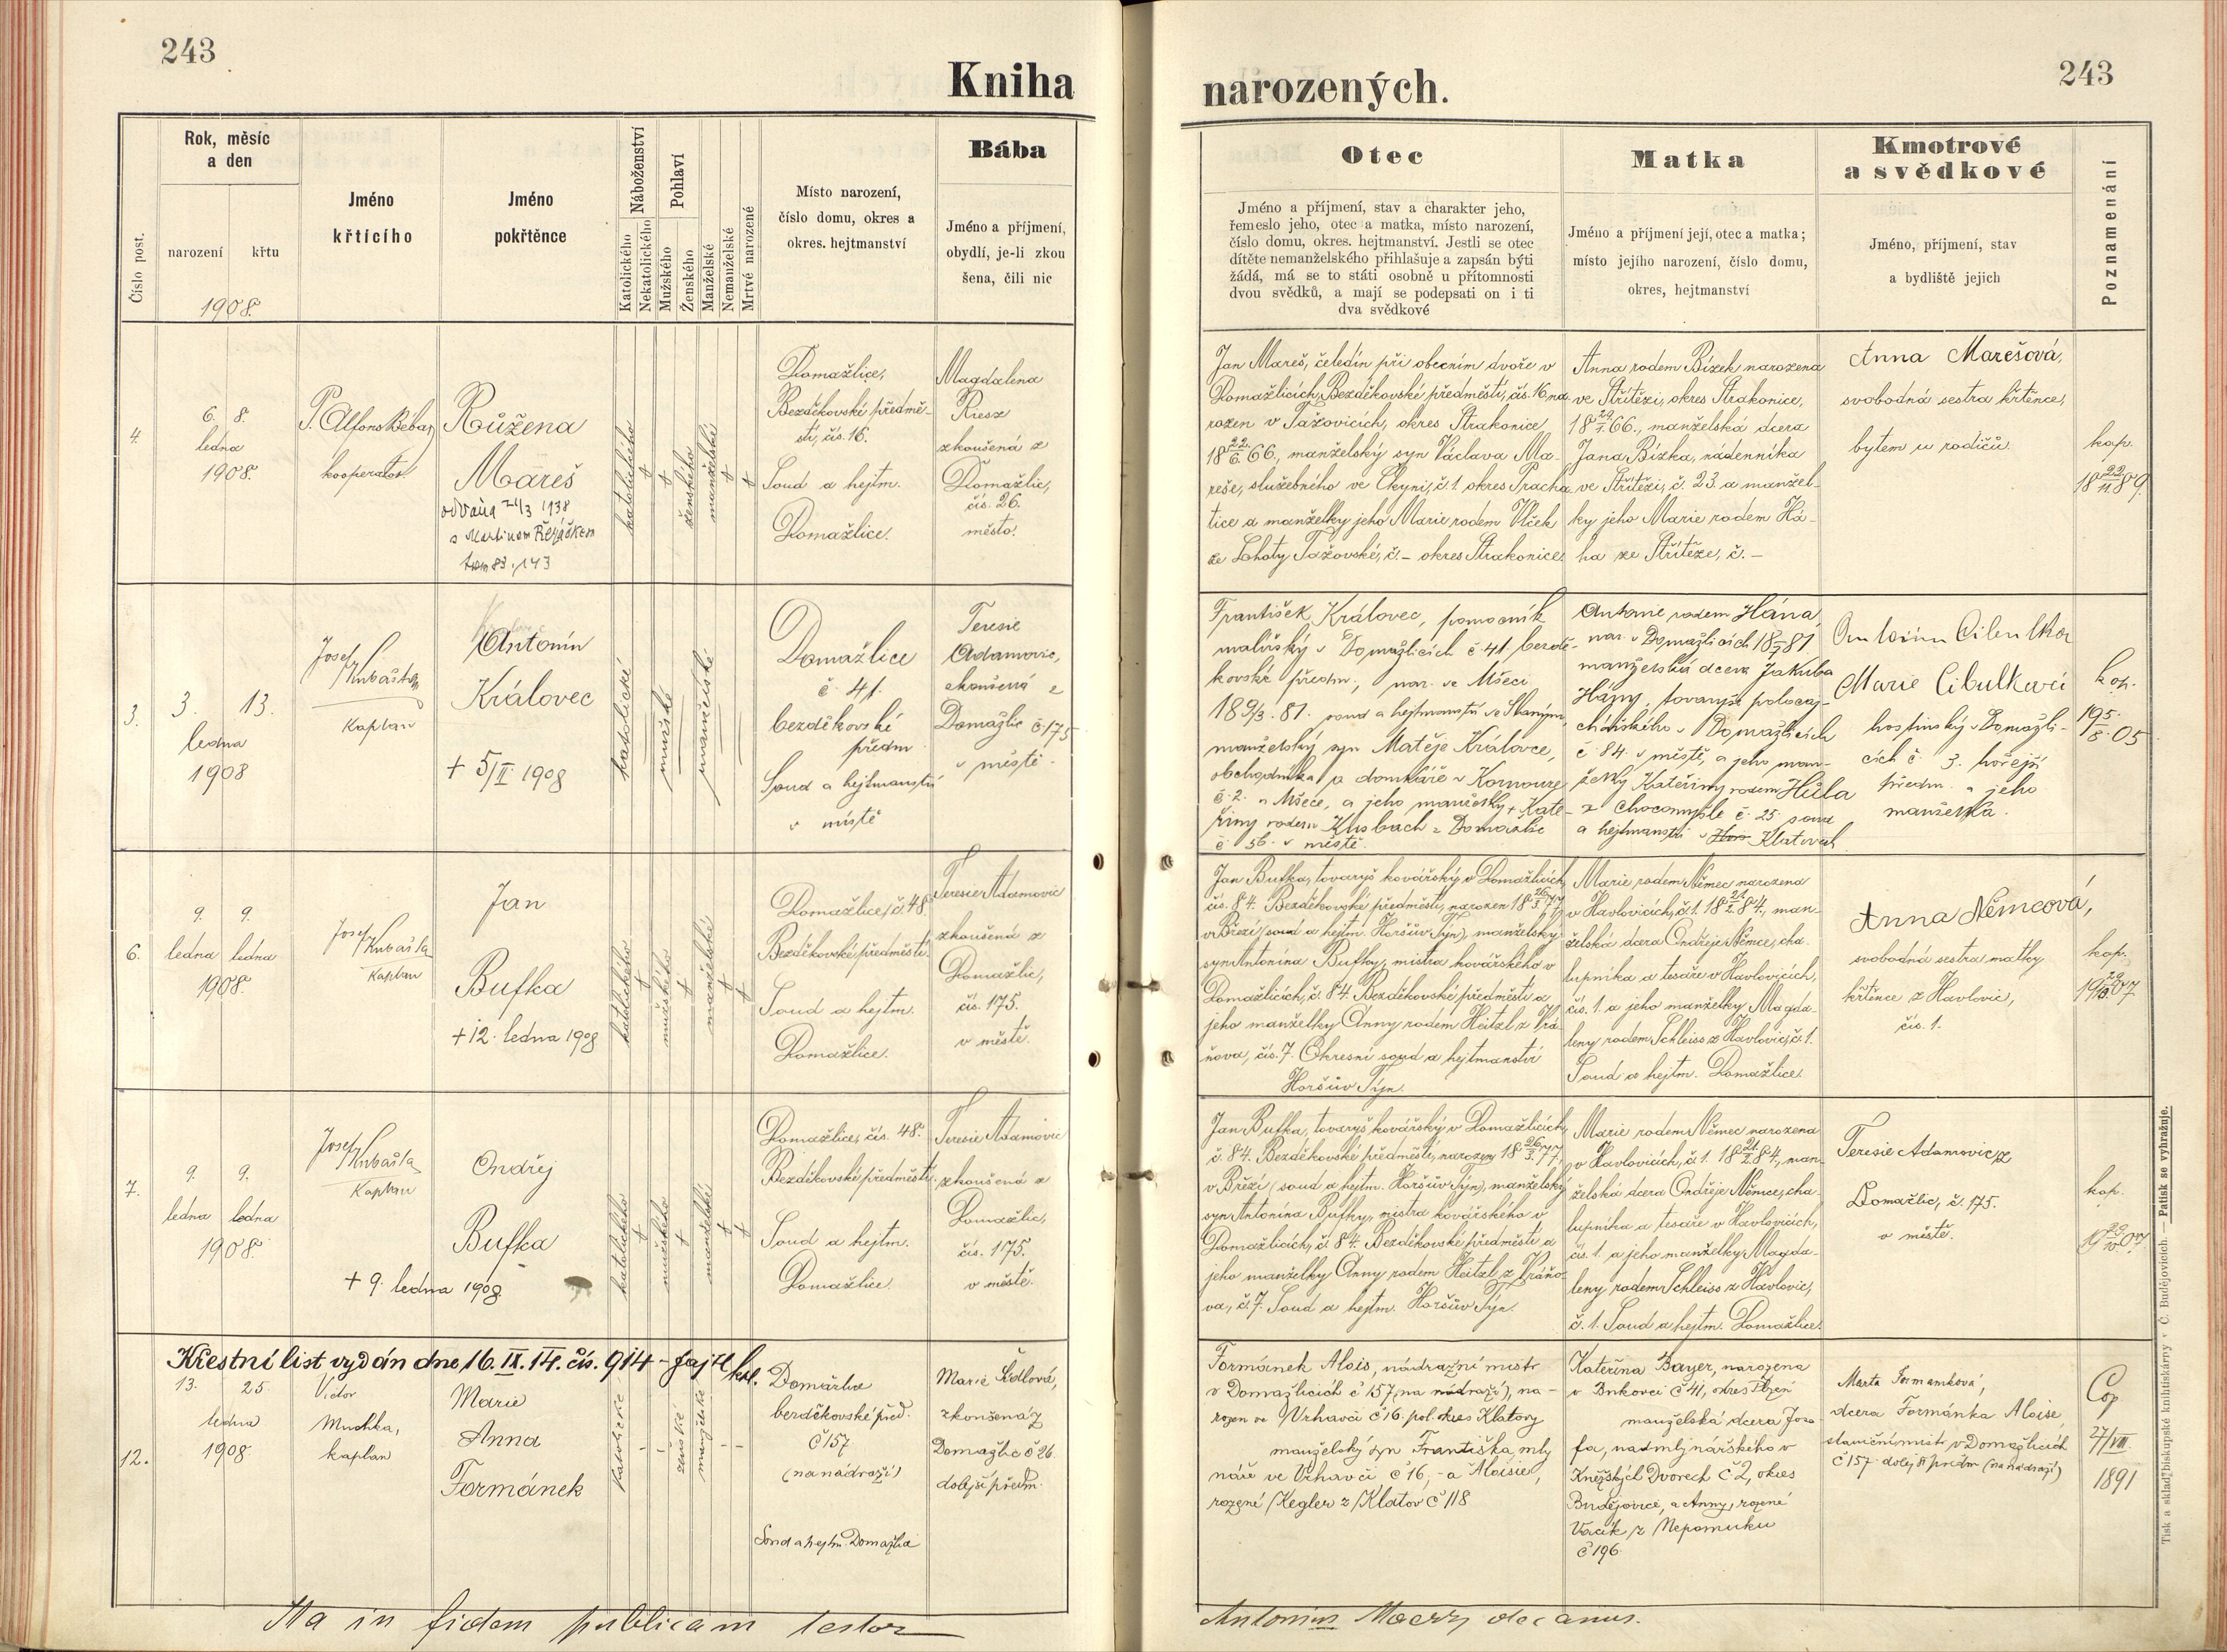 243
Kniha
narozených.
243
Číslo post.
Rok, měsíc
a den
narození
křtu
1908.
Jméno
křtícího
Jméno
pokřtěnce
Náboženství
Katolického
Nekatolického
Pohlaví
Mužského
Ženského
Manželské
Nemanželské
Mrtvě narozené
Místo narození,
číslo domu, okres a
okres. hejtmanství
Bába
Jméno a příjmení,
obydlí, je-li zkou
šena, čili nic
Otec
Jméno a příjmení, stav a charakter jeho,
řemeslo jeho, otec a matka, místo narození,
číslo domu, okres. hejtmanství. Jestli se otec
dítěte nemanželského přihlašuje a zapsán býti
žádá, má se to státi osobně u přítomnosti
dvou svědků, a mají se podepsati on i ti
dva svědkové
Matka
Jméno a příjmení její, otec a matka;
místo jejího narození, číslo domu,
okres, hejtmanství
Kmotrové
a svědkové
Jméno, příjmení, stav
a bydliště jejich
Poznamenání
4.
6. 8.
ledna
1908.
P. Alfons
kooperator
Růžena
Mareš
1938
s Martinem
83, 143
katolického
ženského
manželské
Domažlice,
Bezděkovské předmě-
stí, čís. 16.
Soud a hejtm.
Domažlice.
Magdalena
Riesz
zkoušená z
Domažlic,
čís. 26.
město.
Jan Mareš, čeledín při obecním dvoře v
Domažlicích, Bezděkovské předměstí, čís. 16, na-
rozen v Tažovicích, okres Strakonice
18 22/6. 66., manželský syn Václava Ma-
reše, služebného ve Čkyni, č. 1. okres Pracha
tice a manželky jeho Marie rodem Vlček
ze Lhoty Tažovské, č. – okres Strakonice.
Anna rodem Bízek narozena
ve Střítězi, okres Strakonice,
66., manželská dcera
Jana Bízka, nádenníka
ve Střítězi, č. 23 a manžel-
ky jeho Marie rodem Há-
ha ze Střítěže, č. –
Anna Marešová,
svobodná sestra křtěnce,
bytem u rodičů.
kop.
18 22/11 89.
3.
3. 13.
ledna
1908
Josef Kubašta
Kaplan
Antonín
Královec
+ 5/II 1908
katolické
mužské
manželské
Domažlice
č. 41.
bezděkovské
předm
Soud a hejtmanství
v místě
Teresie
Adamovic,
zkoušená z
Domažlic č 175
v městě.
František Královec, pomocník
malířský v Domažlicích č 41 bezdě-
kovské předm., nar. ve Mšeci
18 9/3. 81. soud a hejtmanství ve Slaném,
manželský syn Matěje Královce,
obchodníka a domkáře v
č. 2. u Mšece, a jeho manželky + Kate-
řiny rodem z Domažlic
č 56. v městě.
rodem Hána,
nar. v Domažlicích
manželská dcera Jakuba
Hány, tovaryše
v Domažlicích
č 84. v městě, a jeho man-
želky Kateřiny rodem Hůla
z Chocomyšle č. 25. soud
a hejtmanství v Klatovech
Antonín Cibulka
Marie Cibulková
hostinský v Domažli-
cích č. 3. hořejší
předm. a jeho
manželka.
kop.
19 5/8. 05
6.
9. 9.
ledna ledna
1908.
Josef Kubašta
Kaplan
Jan
Bufka
+ 12. ledna 1908
katolického
mužského
manželské
Domažlice, č. 48.
Bezděkovské předměstí.
Soud a hejtm.
Domažlice.
Teresie Adamovic
zkoušená z
Domažlic,
čís. 175.
v městě.
Jan Bufka, tovaryš kovářský v Domažlicích,
čís. 84. Bezděkovské předměstí, narozen 18 26/3. 77
v Březí (soud a hejtm. Horšův Týn), manželský
syn Antonína Bufky, mistra kovářského v
Domažlicích, č. 84. Bezděkovské předměstí a
jeho manželky Anny rodem Heitzl z Srá-
ňova, čís. 7. Okresní soud a hejtmanství
Horšův Týn.
Marie rodem Němec narozena
v Havlovicích, č. 1. 18 21/2. 84., man-
želská dcera Ondřeje Němce, cha-
lupníka a tesaře v Havlovicích,
čís. 1. a jeho manželky Magda-
leny rodem Schleiss z Havlovic, č. 1.
Soud a hejtm. Domažlice.
Anna Němcová,
svobodná sestra matky
křtěnce z Havlovic,
čís. 1.
kop.
19 29/10. 07
7.
9. 9.
ledna ledna
1908.
Josef Kubašta
Kaplan
Ondřej
Bufka
+ 9. ledna 1908.
katolického
mužského
manželské
Domažlice, čís. 48.
Bezděkovské předměstí.
Soud a hejtm.
Domažlice.
Teresie Adamovic
zkoušená z
Domažlic,
čís. 175.
v městě.
Jan Bufka, tovaryš kovářský v Domažlicích,
č. 84. Bezděkovské předměstí, narozen 18 26/3. 77.
v Březí (soud a hejtm. Horšův Týn), manželský
syn Antonína Bufky, mistra kovářského v
Domažlicích, č. 84. Bezděkovské předměstí a
jeho manželky Anny rodem Heitzl z Sráňo-
va, č. 7. Soud a hejtm. Horšův Týn.
Marie rodem Němec narozena
v Havlovicích, č. 1. 18 21/2. 84., man-
želská dcera Ondřeje Němce, cha-
lupníka a tesaře v Havlovicích,
čís. 1. a jeho manželky Magda-
leny rodem Schleiss z Havlovic,
č. 1. Soud a hejtm. Domažlice.
Teresie Adamovic, z
Domažlic, č. 175.
v městě.
kop.
19 29/10 07
Křestní list vydán dne 16. IX. 14. čís. 914
12.
13. 25
ledna
1908.
Victor
Muchka,
kaplan
Marie
Anna
Formánek
katolické
ženské
manželské
Domažlice
bezděkovské před.
č 157
(na nádraží)
Soud a hejtm. Domažlice
Marie Šídlová,
zkoušená z
Domažlic č 26
dolejší předm.
Formánek Alois, nádražní mistr
v Domažlicích č 157 (na nádraží), na-
rozen ve Vrhavči č 16. pol. okres Klatovy
manželský syn Františka, mly
náře ve Vrhavči č 16, - a Aloisie,
rozené Kegler z Klatov č 118
Kateřina Bayer, narozena
v č 41, okres Plzeň
manželská dcera Jose-
fa, nadmlynářského v
Knížských Dvorech č 2, okres
Budějovice, a Anny, rozené
Vacík z Nepomuku
č 196.
Marta Formanková,
dcera Formánka Aloise,
staniční mistr v Domažlicích
č 157 dolejší předm (na nádraží)
Cop
27/VII.
1891
Ita in fidem publicam testor
Antonius decanus.
Tisk a sklad biskupské knihtiskárny v Č. Budějovicích. — Patisk se vyhražuje.